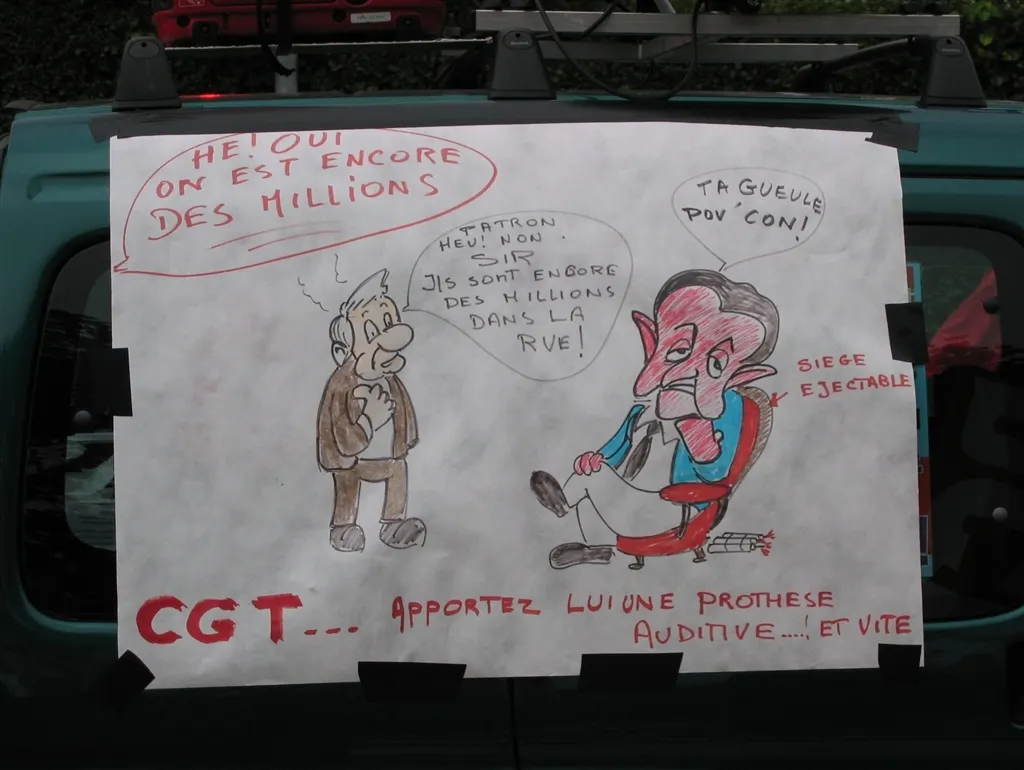 HE! OUI
ON EST ENCORE
DES MILLIONS
PATRON
HEU! NON.
SIR
ILS SONT ENCORE
DES MILLIONS
DANS LA
RUE!
TA GUEULE
POV'CON!
SIEGE
EJECTABLE
CGT... APPORTEZ LUI UNE PROTHESE
AUDITIVE....! ET VITE